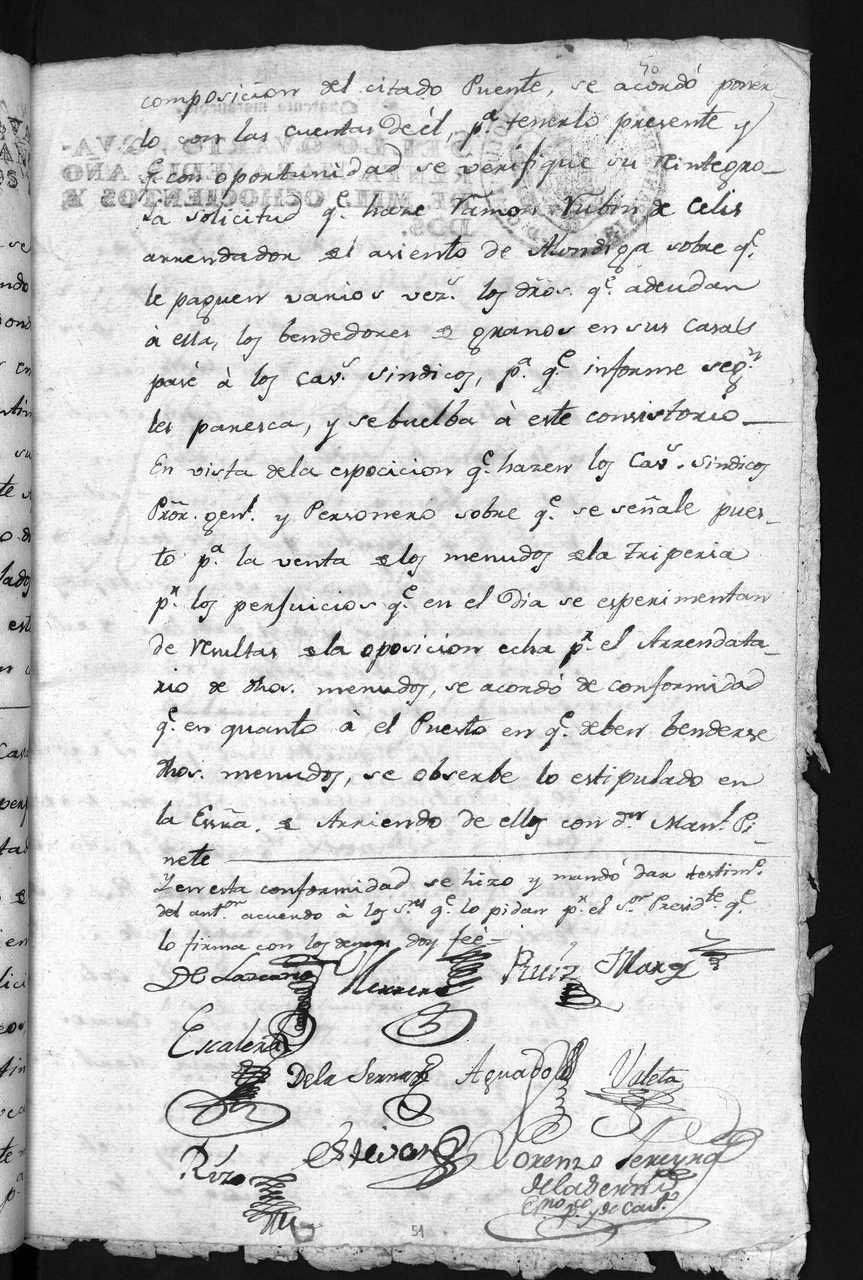 70
composicion del citado Puente, se acordó poner-
lo con las cuentas de él, pª tenerlo presente y
qe con oportunidad se verifique su reintegro—
La solicitud qe haze Ramon Rubin de Celis
arrendador del asiento de Alondiga sobre qe
le paguen varios vezs los dros. qe adeudan
à ella, los bendedores de granos en sus casas
pasé à los Cavs sindicos, pª qe informe segn
les paresca, y se buelba à este consistorio—
En vista dela esposicion qe hazen los Cavs. Sindicos
Pror. genl. y Personero sobre qe se señale pues-
to pª la venta de los menudos de la Triperia
pr los perjuicios qe en el Dia se esperimentan
de resultas de la oposicion echa pr el Arrendata-
rio de dhos. menudos, se acordó de conformidad
qe en quanto à el Puesto en qe deben benderse
dhos. menudos, se observe lo estipulado en
la Essra. de Arriendo de ellos con dn Manl. Pi-
nete
Y en esta conformidad se hizo y mandó dar testimo.
del antor acuerdo à los Sres qe lo pidan pr el Sor Presidte qe
lo firma con los demas doy fée=
Herrero Ruiz
Escalera
De la Serna Aguado Valeta
Rizo Estevan Lorenzo Pereyra
de la Serna
51